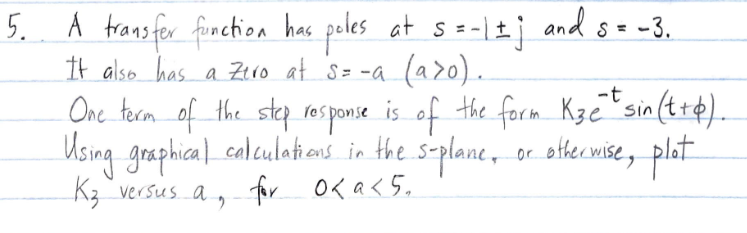 5. A transfer function has poles at s = -1 ± j and s = -3.
It also has a zero at s = -a (a>0).
One term of the step response is of the form K₃e⁻ᵗ sin(t+φ).
Using graphical calculations in the s-plane, or otherwise, plot
K₃ versus a, for 0<a<5.